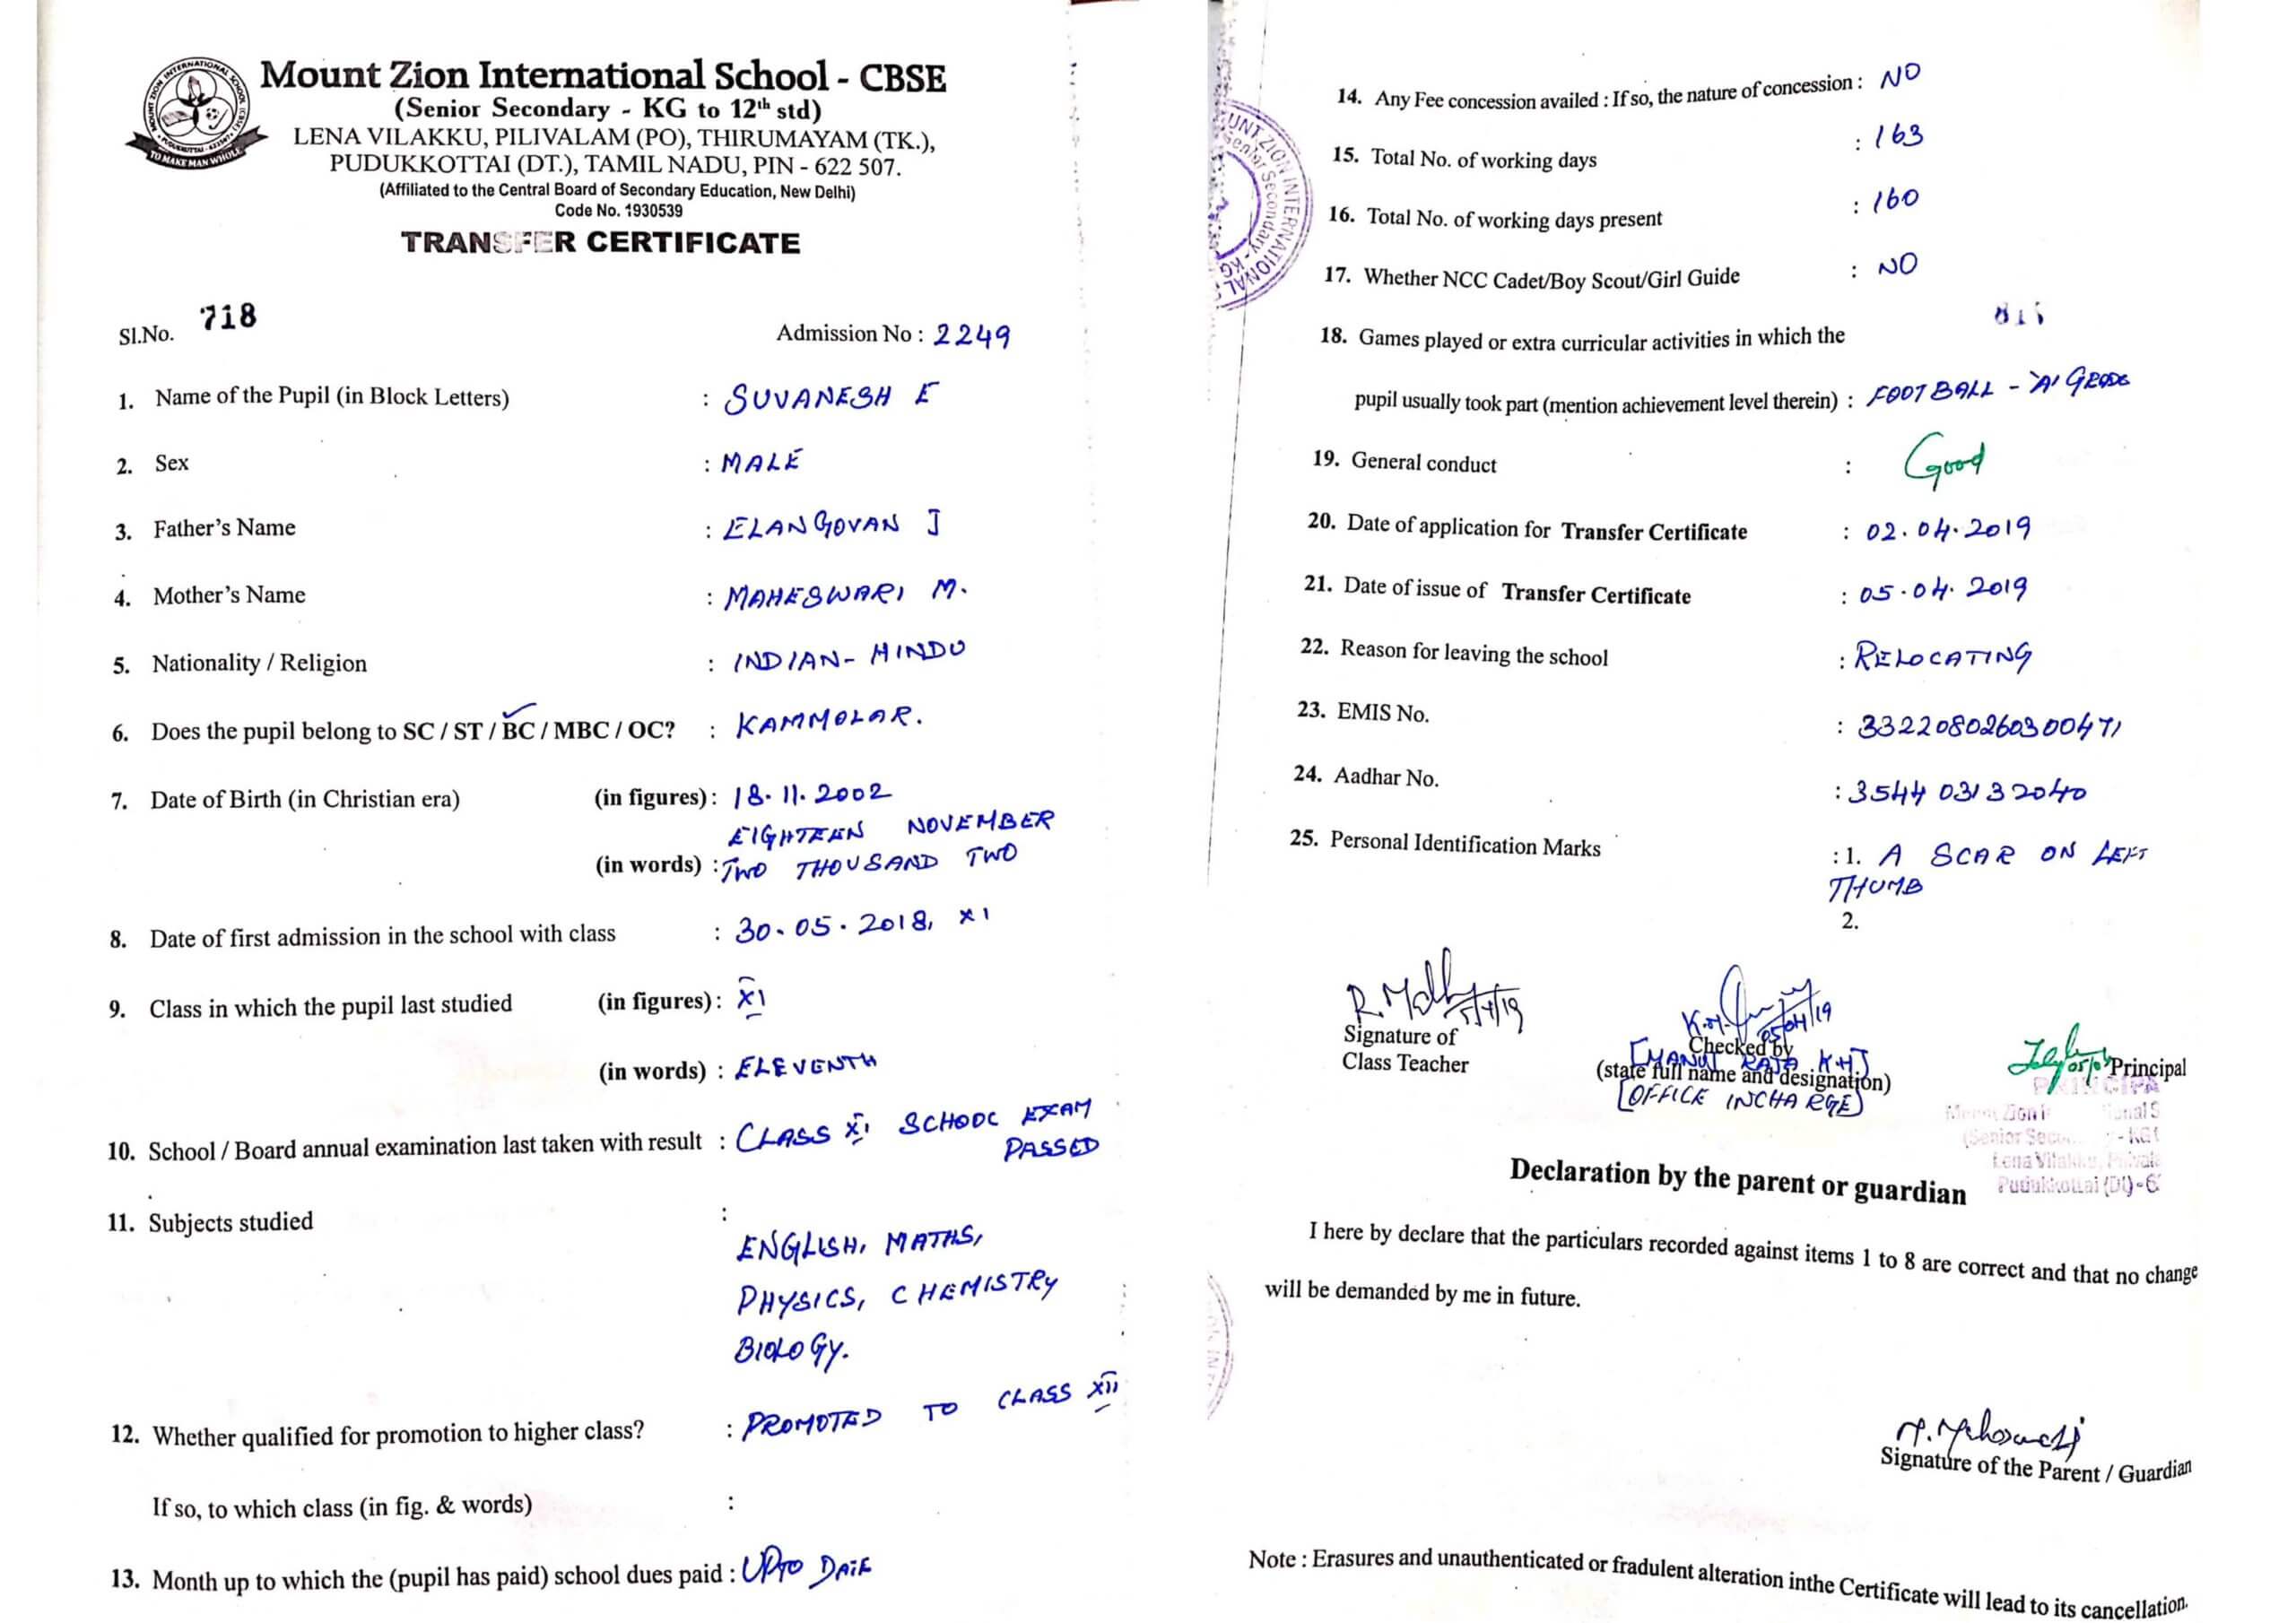 Mount Zion International School - CBSE
(Senior Secondary - KG to 12th std)
LENA VILAKKU, PILIVALAM (PO), THIRUMAYAM (TK.),
PUDUKKOTTAI (DT.), TAMIL NADU, PIN - 622 507.
(Affiliated to the Central Board of Secondary Education, New Delhi)
Code No. 1930539
TRANSFER CERTIFICATE
TO MAKE MAN WHOLE
Sl.No. 718 Admission No : 2249
1. Name of the Pupil (in Block Letters) : SUVANESH E
2. Sex : MALE
3. Father's Name : ELANGOVAN J
4. Mother's Name : MAHESWARI M.
5. Nationality / Religion : INDIAN - HINDU
6. Does the pupil belong to SC / ST / BC / MBC / OC? : KAMMOLAR.
7. Date of Birth (in Christian era) (in figures) : 18.11.2002
EIGHTEEN NOVEMBER
(in words) : TWO THOUSAND TWO
8. Date of first admission in the school with class : 30.05.2018, XI
9. Class in which the pupil last studied (in figures) : XI
(in words) : ELEVENTH
10. School / Board annual examination last taken with result : CLASS XI SCHOOL EXAM
PASSED
11. Subjects studied :
ENGLISH, MATHS,
PHYSICS, CHEMISTRY
BIOLOGY.
12. Whether qualified for promotion to higher class? : PROMOTED TO CLASS XII
If so, to which class (in fig. & words) :
13. Month up to which the (pupil has paid) school dues paid : UPTO DATE
14. Any Fee concession availed : If so, the nature of concession : NO
15. Total No. of working days : 163
16. Total No. of working days present : 160
17. Whether NCC Cadet/Boy Scout/Girl Guide : NO
18. Games played or extra curricular activities in which the
pupil usually took part (mention achievement level therein) : FOOTBALL - 'A' GRADE
19. General conduct : Good
20. Date of application for Transfer Certificate : 02.04.2019
21. Date of issue of Transfer Certificate : 05.04.2019
22. Reason for leaving the school : RELOCATING
23. EMIS No. : 3322080260300471
24. Aadhar No. : 3544 0313 2040
25. Personal Identification Marks : 1. A SCAR ON LEFT
THUMB
2.
5/4/19
05/04/19
Signature of
Class Teacher
Checked by
[MANUJ RAJA K.H]
(state full name and designation)
[OFFICE INCHARGE]
Principal
Declaration by the parent or guardian
I here by declare that the particulars recorded against items 1 to 8 are correct and that no change
will be demanded by me in future.
Signature of the Parent / Guardian
Note : Erasures and unauthenticated or fradulent alteration inthe Certificate will lead to its cancellation.